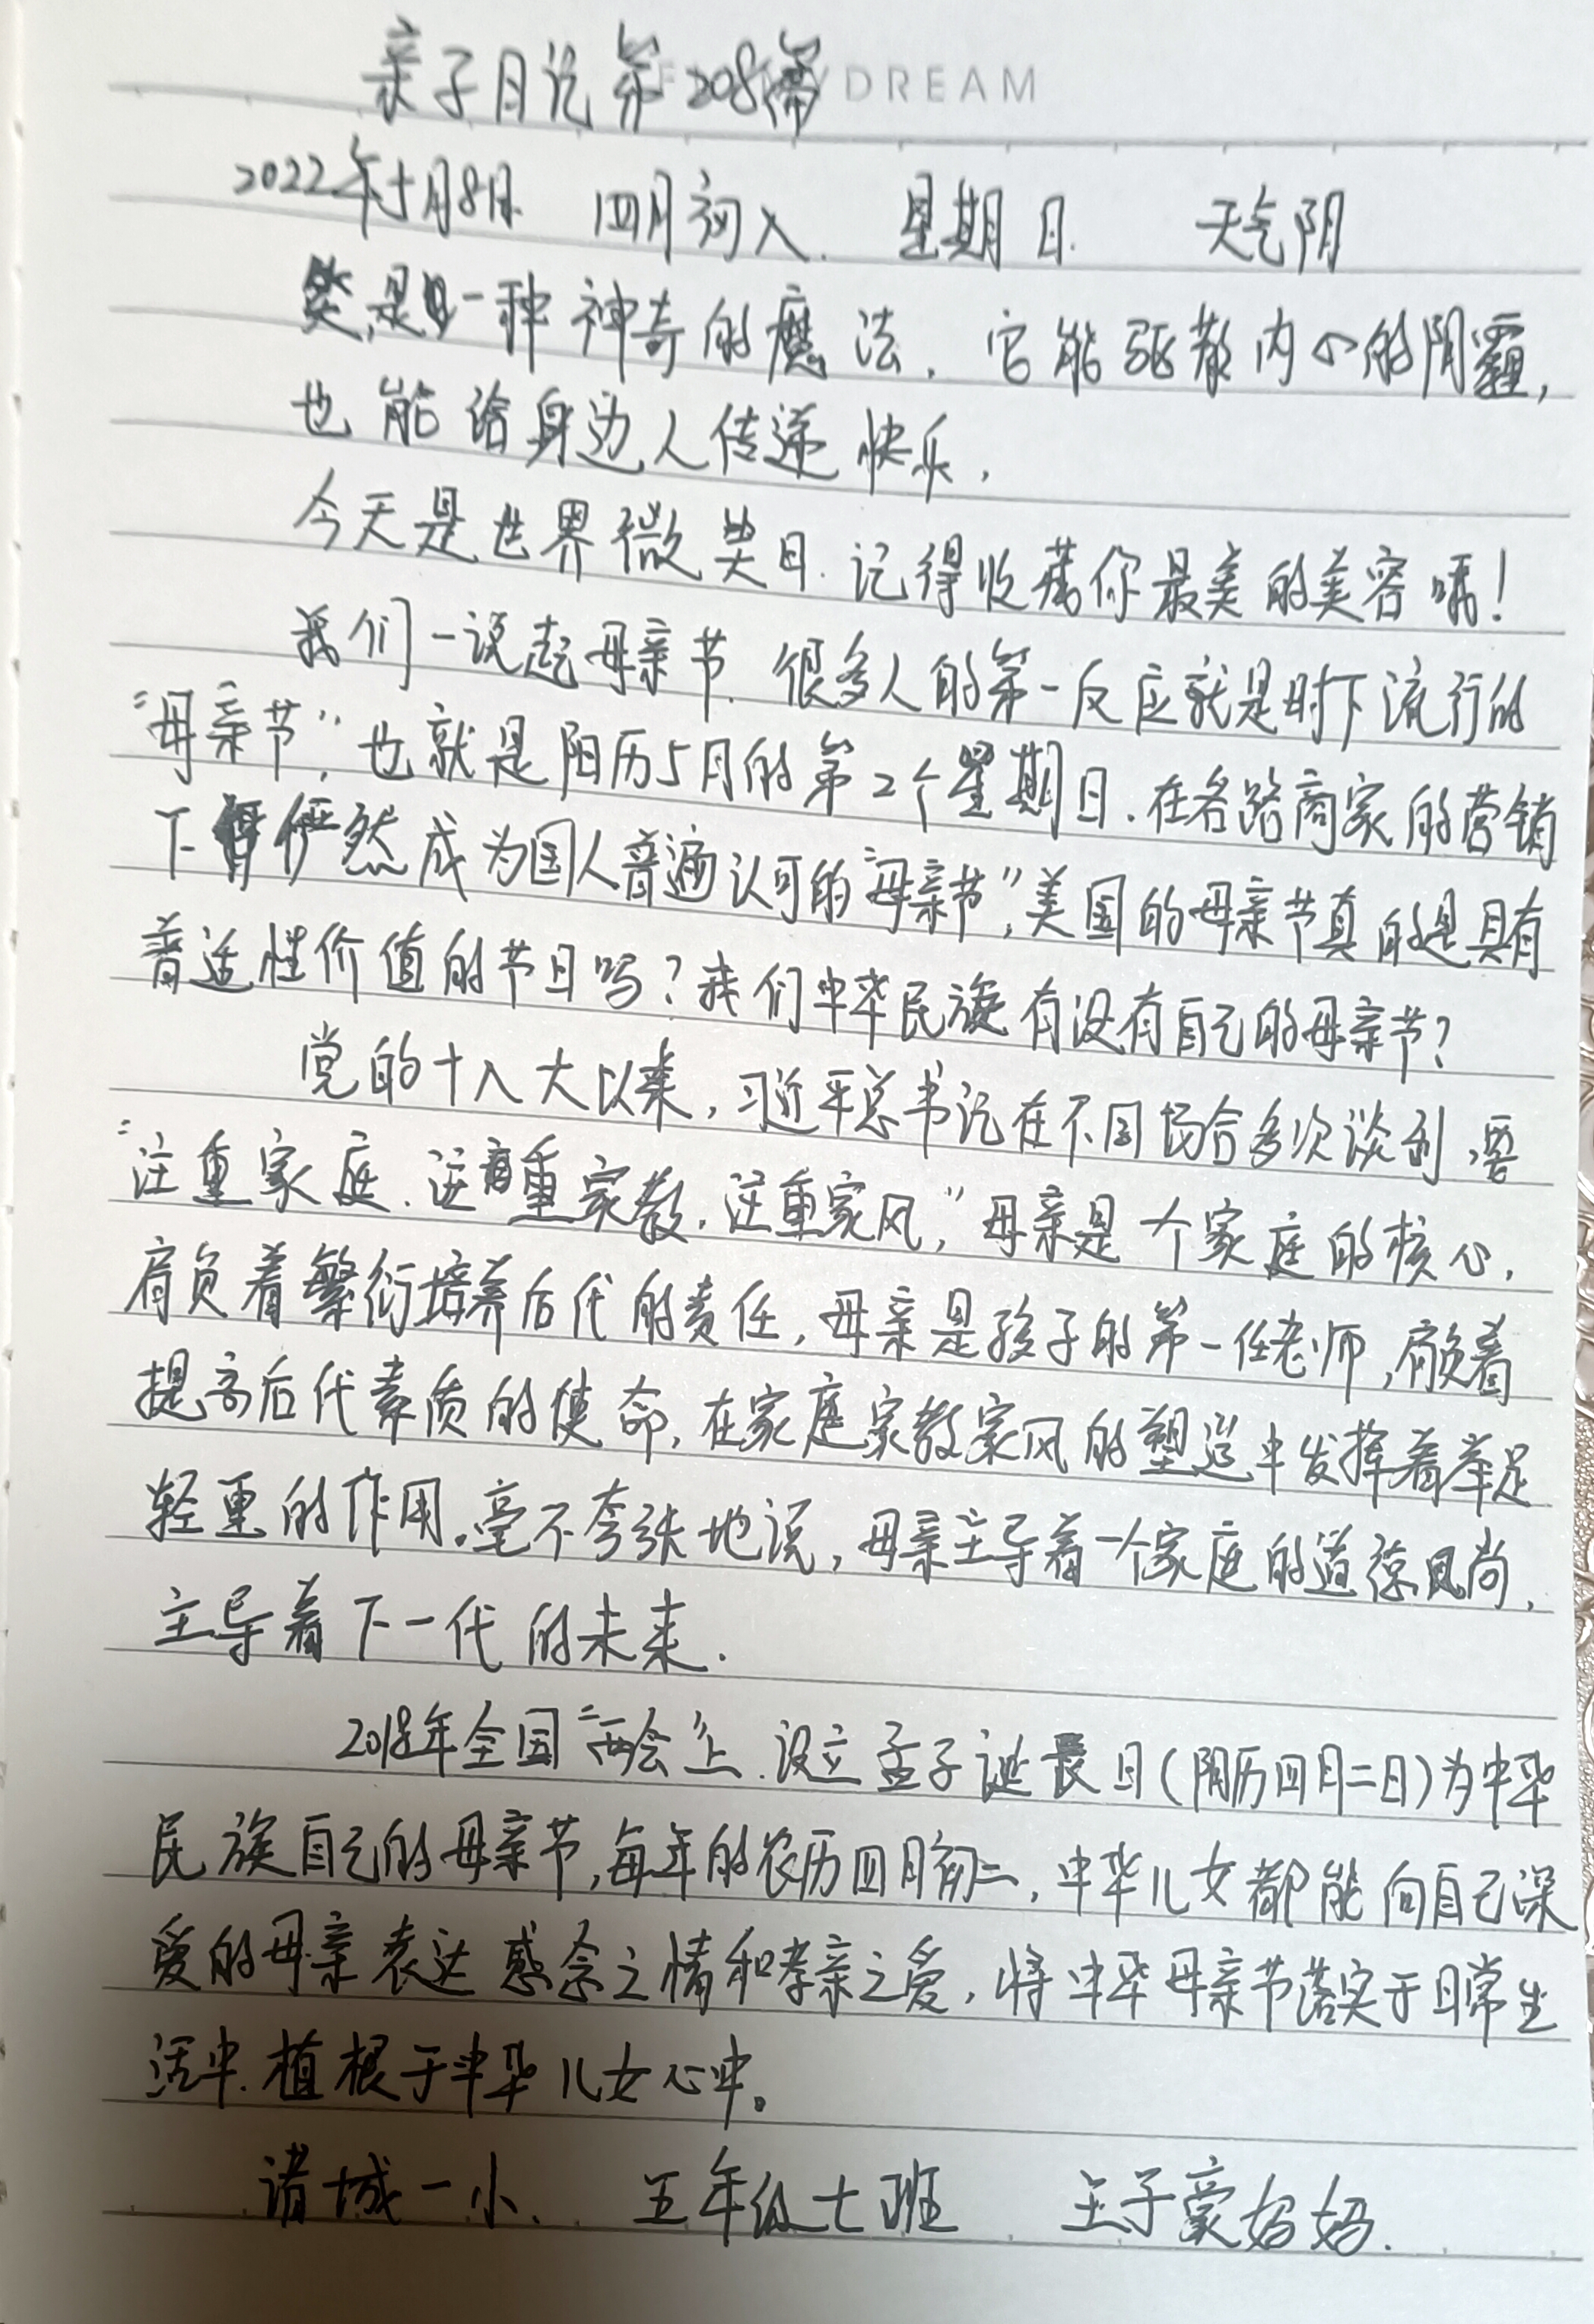 亲子日记第208篇
MYDREAM
2022年5月8日 四月初八. 星期日. 天气阴
笑,是一种神奇的魔法.它能驱散内心的阴霾,
也能给身边人传递快乐.
今天是世界微笑日.记得收藏你最美的美容嘴!
我们一说起母亲节.很多人的第一反应就是时下流行的
“母亲节”,也就是阳历5月的第2个星期日.在各路商家的营销
下俨然成为国人普遍认可的“母亲节”,美国的母亲节真的是具有
普适性价值的节日吗?我们中华民族有没有自己的母亲节?
党的十八大以来,习近平总书记在不同场合多次谈到,要
“注重家庭.注重家教.注重家风,”母亲是一个家庭的核心,
肩负着繁衍培养后代的责任,母亲是孩子的第一任老师,肩负着
提高后代素质的使命,在家庭家教家风的塑造中发挥着举足
轻重的作用。毫不夸张地说,母亲主导着一个家庭的道德风尚,
主导着下一代的未来.
2018年全国“两会”上.设立孟子诞辰日(阴历四月二日)为中华
民族自己的母亲节,每年的农历四月初二,中华儿女都能向自己深
爱的母亲表达感念之情和孝亲之爱,将中华母亲节落实于日常生
活中.植根于中华儿女心中。
诸城一小. 五年级七班 王子豪妈妈.